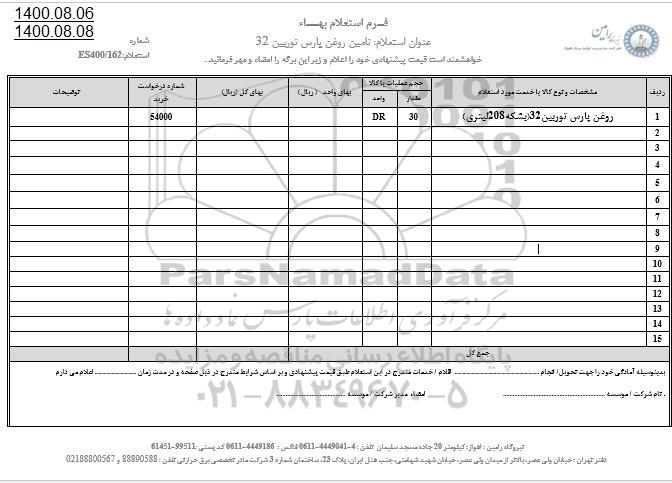 1400.08.06
1400.08.08
فـرم استعلام بهـــاء
عنوان استعلام: تامین روغن پارس توربین 32
شماره
استعلام: ES400/162
خواهشمند است قیمت پیشنهادی خود را اعلام و زیر این برگه را امضاء و مهر فرمائید.
رامین
شرکت مدیریت تولید برق اهواز
ردیف
مشخصات و نوع کالا یا خدمت مورد استعلام
حجم عملیات یا کالا
مقدار
واحد
بهای واحد (ریال)
بهای کل (ریال)
شماره درخواست خرید
توضیحات
1 روغن پارس توربین32(بشکه208لیتری) 30 DR 54000
2
3
4
5
6
7
8
9
10
11
12
13
14
15
جمع کل
ParsNamadData
مرکز فرآوری اطلاعات پارس نماد داده ها
پایگاه اطلاع رسانی مناقصه و مزایده
۰۲۱-۸۸۳۴۹۶۷۰-۵
بدینوسیله آمادگی خود را جهت تحویل/ انجام ........ اقلام / خدمات مندرج در این استعلام طبق قیمت پیشنهادی و بر اساس شرایط مندرج در ذیل صفحه و در مدت زمان ........ اعلام می دارم
. نام شرکت / موسسه ........ امضاء مدیر شرکت / موسسه ........
نیروگاه رامین : اهواز: کیلومتر 20 جاده مسجد سلیمان تلفن : 4-4449041-0611 فاکس : 4449186-0611 کد پستی :99511-61451
دفتر تهران : خیابان ولی عصر، بالاتر از میدان ولی عصر، خیابان شهید شهامتی، جنب هتل ایران، پلاک 23، ساختمان شماره 3 شرکت مادر تخصصی برق حرارتی تلفن : 88890588 و 02188800567